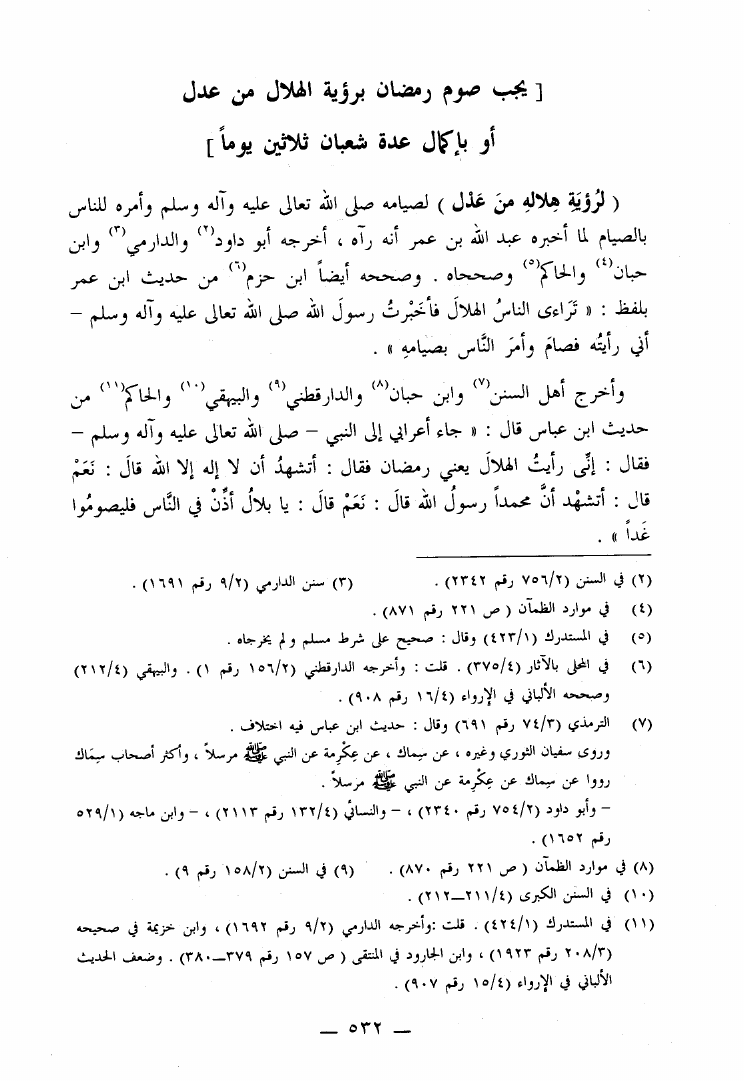 [ يجب صوم رمضان برؤية الهلال من عدل
أو بإكمال عدة شعبان ثلاثين يوماً ]
( لرُؤيَةِ هِلالهِ منَ عَدْل ) لصيامه صلى الله تعالى عليه وآله وسلم وأمره للناس
بالصيام لما أخبره عبد الله بن عمر أنه رآه ، أخرجه أبو داود(٢) والدارمي(٣) وابن
حبان(٤) والحاكم(٥) وصححاه . وصححه أيضاً ابن حزم(٦) من حديث ابن عمر
بلفظ : « تَرَاءى الناسُ الهلالَ فأخَبْرتُ رسولَ الله صلى الله تعالى عليه وآله وسلم –
أني رأيتُه فصامَ وأمرَ النَّاس بصيامهِ » .
وأخرج أهل السنن(٧) وابن حبان(٨) والدارقطني(٩) والبيهقي(١٠) والحاكم(١١) من
حديث ابن عباس قال : « جاء أعرابي إلى النبي – صلى الله تعالى عليه وآله وسلم –
فقال : إنِّى رأيتُ الهلالَ يعني رمضان فقال : أتشهدُ أن لا إله إلا الله قالَ : نَعَمْ
قال : أتشهْد أنَّ محمداً رسولُ الله قالَ : نَعَمْ قالَ : يا بلالُ أذِّنْ في النَّاس فليصومُوا
غَداً » .
(٢) في السنن (٧٥٦/٢ رقم ٢٣٤٢) . (٣) سنن الدارمي (٩/٢ رقم ١٦٩١) .
(٤) في موارد الظمآن ( ص ٢٢١ رقم ٨٧١) .
(٥) في المستدرك (٤٢٣/١) وقال : صحيح على شرط مسلم ولم يخرجاه .
(٦) في المحلى بالآثار (٣٧٥/٤) . قلت : وأخرجه الدارقطني (١٥٦/٢ رقم ١) . والبيهقي (٢١٢/٤)
وصححه الألباني في الإرواء (١٦/٤ رقم ٩٠٨) .
(٧) الترمذي (٧٤/٣ رقم ٦٩١) وقال : حديث ابن عباس فيه اختلاف .
وروى سفيان الثوري وغيره ، عن سِماك ، عن عِكْرِمة عن النبي ﷺ مرسلاً ، وأكثر أصحاب سِمَاك
رووا عن سِماك عن عِكْرِمة عن النبي ﷺ مرسلاً .
– وأبو داود (٧٥٤/٢ رقم ٢٣٤٠) ، – والنسائي (١٣٢/٤ رقم ٢١١٣) ، – وابن ماجه (٥٢٩/١
رقم ١٦٥٢) .
(٨) في موارد الظمآن ( ص ٢٢١ رقم ٨٧٠) . (٩) في السنن (١٥٨/٢ رقم ٩) .
(١٠) في السنن الكبرى (٢١١/٤–٢١٢) .
(١١) في المستدرك (٤٢٤/١) . قلت :وأخرجه الدارمي (٩/٢ رقم ١٦٩٢) ، وابن خزيمة في صحيحه
(٢٠٨/٣ رقم ١٩٢٣) ، وابن الجارود في المنتقى ( ص ١٥٧ رقم ٣٧٩–٣٨٠) . وضعف الحديث
الألباني في الإرواء (١٥/٤ رقم ٩٠٧) .
– ٥٣٢ –